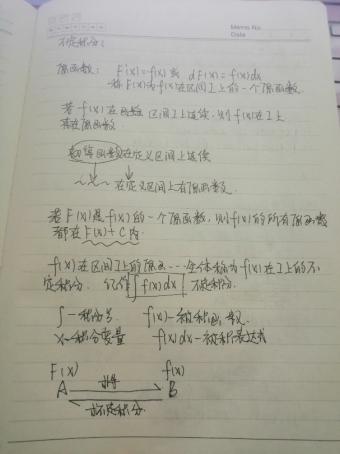 Memo No.
Date
不定积分：
原函数： F'(x)=f(x) 或 dF(x)=f(x)dx
称F(x)为f(x)在区间I上的一个原函数.
若f(x)在区间I上连续，则f(x)在I上
存在原函数
初等函数在定义区间上连续
在定义区间上有原函数.
若F(x)是f(x)的一个原函数，则f(x)的所有原函数
都在F(x)+C内.
f(x)在区间I上的原函…全体称为f(x)在I上的不
定积分. 记作∫f(x)dx 不定积分.
∫—积分号 f(x)—被积函数
x—积分变量 f(x)dx—被积表达式
F(x) f(x)
A 求导 B
求不定积分